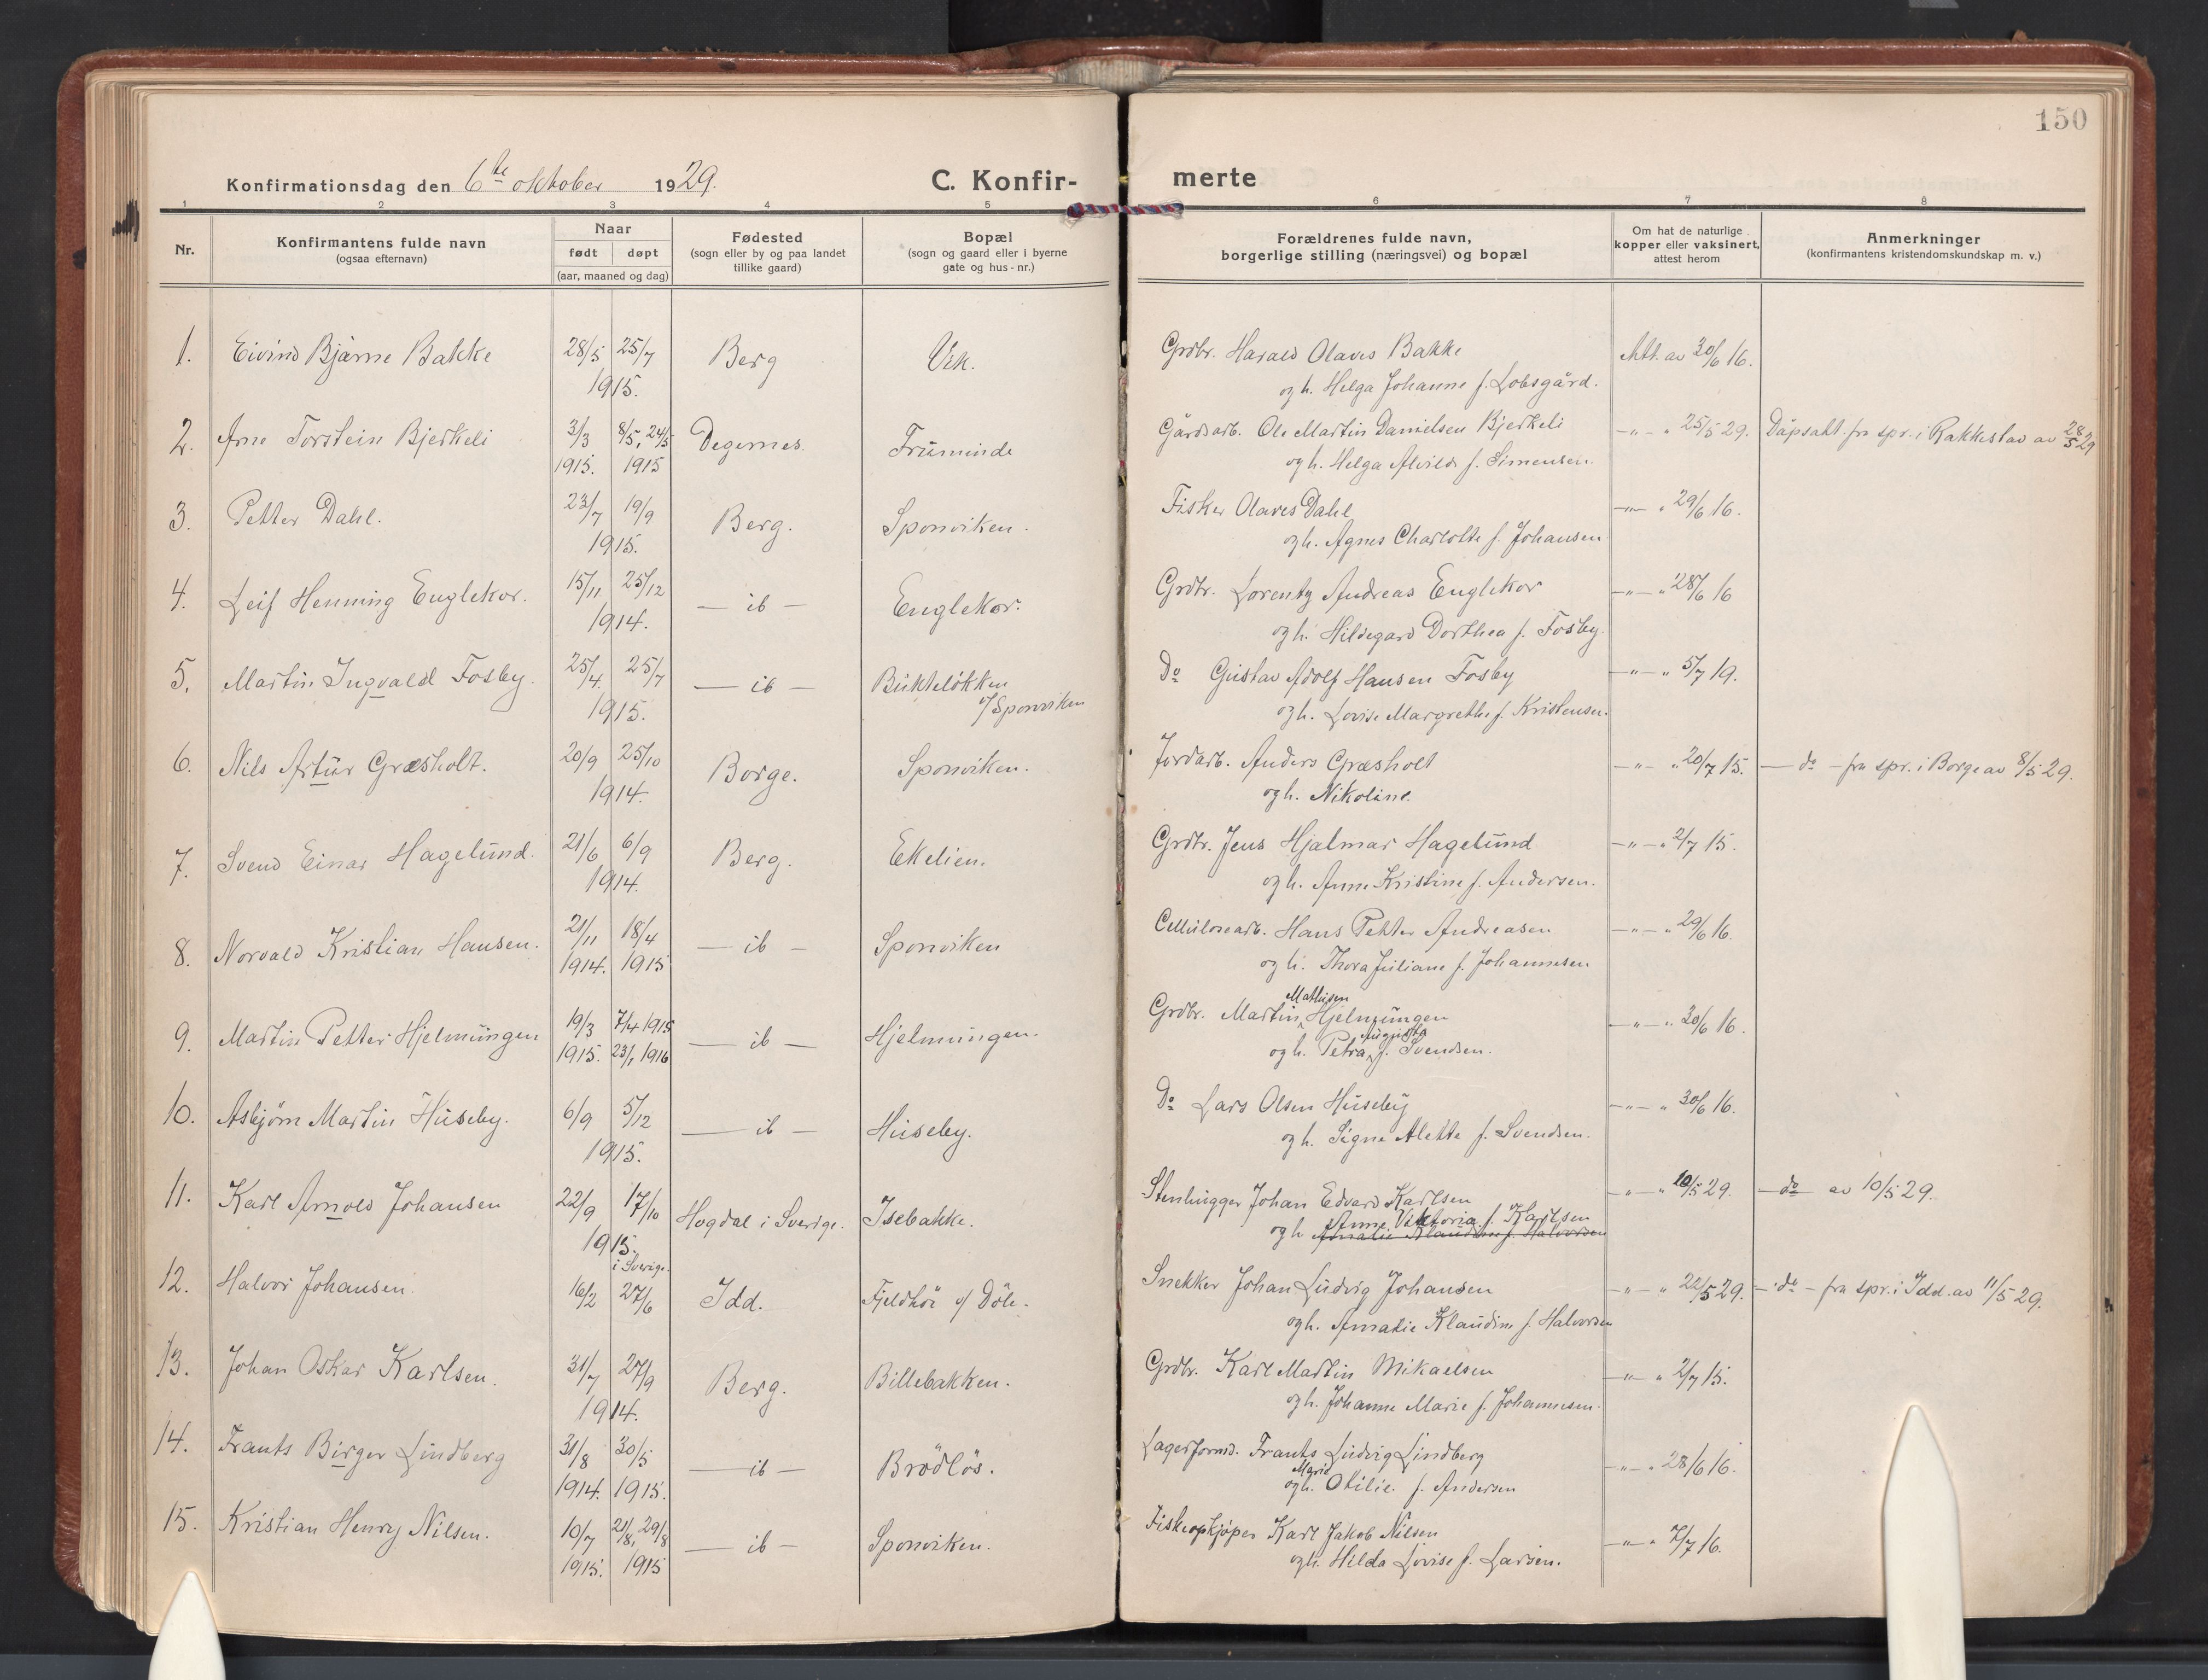 150
Konfirmationsdag den 6te oktober 1929.
C. Konfir-
merte
1 2 3 4 5 6 7 8
Nr.
Konfirmantens fulde navn
(ogsaa efternavn)
Naar
født døpt
(aar, maaned og dag)
Fødested
(sogn eller by og paa landet
tillike gaard)
Bopæl
(sogn og gaard eller i byerne
gate og hus-nr.)
Forældrenes fulde navn,
borgerlige stilling (næringsvei) og bopæl
Om hat de naturlige
kopper eller vaksinert,
attest herom
Anmerkninger
(konfirmantens kristendomskundskap m. v.)
1. Eivind Bjarne Bakke 28/5 25/7 Berg Vik. Grdbr. Harald Olaves Bakke Att. av 30/6 16.
1915. og h. Helga Johanne f. Lobsgård.
2. Arne Torstein Bjerkeli 3/3 8/5, 24/5 Degernes. Fruminde Gårdsarb. Ole Martin Danielsen Bjerkeli -"- " 25/5 29. Dåpsatt. fra spr. i Rakkestad av 28/5 29
1915. 1915 og h. Helga Alvilde f. Simensen.
3. Petter Dahl. 23/7 19/9 Berg. Sponviken. Fisker Olaves Dahl -"- " 29/6 16.
1915. og h. Agnes Charlotte f. Johansen
4. Leif Henning Englekor. 15/11 25/12 - ib - Englekor. Grdbr. Lorentz Andreas Englekor -"- " 28/6 16
1914. og h. Hildegard Dorthea f. Fosby.
5. Martin Ingvald Fosby. 25/4. 25/7 - ib - Bukteløkken Do Gustav Adolf Hansen Fosby -"- " 5/7 19.
1915. y/ Sponviken og h. Lovise Margrethe f. Kristensen.
6. Nils Artur Græsholt. 20/9 25/10 Borge. Sponviken. Jordarb. Anders Græsholt -"- " 20/7 15. - do - fra spr. i Borge av 8/5 29.
1914. og h. Nikoline.
7. Svend Einar Hagelund. 21/6 6/9 Berg. Ekelien. Grdbr. Jens Hjalmar Hagelund -"- " 2/7 15.
1914. og h. Anne Kristine f. Andersen.
8. Norvald Kristian Hansen. 21/11 18/4 - ib - Sponviken Cellulosearb. Hans Petter Andreasen -"- " 29/6 16.
1914. 1915 og h. Thora Juliane f. Johannesen
Mathisen
9. Martin Petter Hjelmungen 19/3 7/4 1915 - ib - Hjelmungen. Grdbr. Martin Hjelmungen -"- " 30/6 16.
Augusta
1915. 23/1 1916 og h. Petra f. Svendsen.
10. Asbjørn Martin Huseby. 6/9 5/12 - ib - Huseby. Do Lars Olsen Huseby -"- " 30/6 16.
1915. og h. Signe Alette f. Svendsen.
11. Karl Arnold Johansen 22/9 17/10 Hogdal i Sverige. Isebakke. Stenhugger Johan Edvard Karlsen -"- " 10/5 29. - do - av 10/5 29.
1915. Anne Viktoria f. Karlsen
i Sverige. og h. Amalie Klaudine f. Halvorsen
12. Halvor Johansen. 16/2 27/6 Idd. Fjeldhøi y/ Døle. Snekker Johan Ludvig Johansen -"- " 22/5 29. - do - fra spr. i Idd. av 11/5 29.
og h. Amalie Klaudine f. Halvorsen
13. Johan Oskar Karlsen. 31/7 27/9 Berg. Billebakken. Grdbr. Karl Martin Mikaelsen -"- " 2/7 15.
1914. og h. Johanne Marie f. Johannesen.
14. Frants Birger Lindberg 31/8 30/5 - ib - Brødløs. Lagerformd. Frants Ludvig Lindberg -"- " 28/6 16.
Marie
1914. 1915. og h. Otilie. f. Andersen
15. Kristian Henry Nilsen. 10/7 21/8, 29/8 - ib - Sponviken. Fiskeopkjøper Karl Jakob Nilsen -"- " 7/7 16.
1915. 1915 og h. Hilda Lovise f. Larsen.